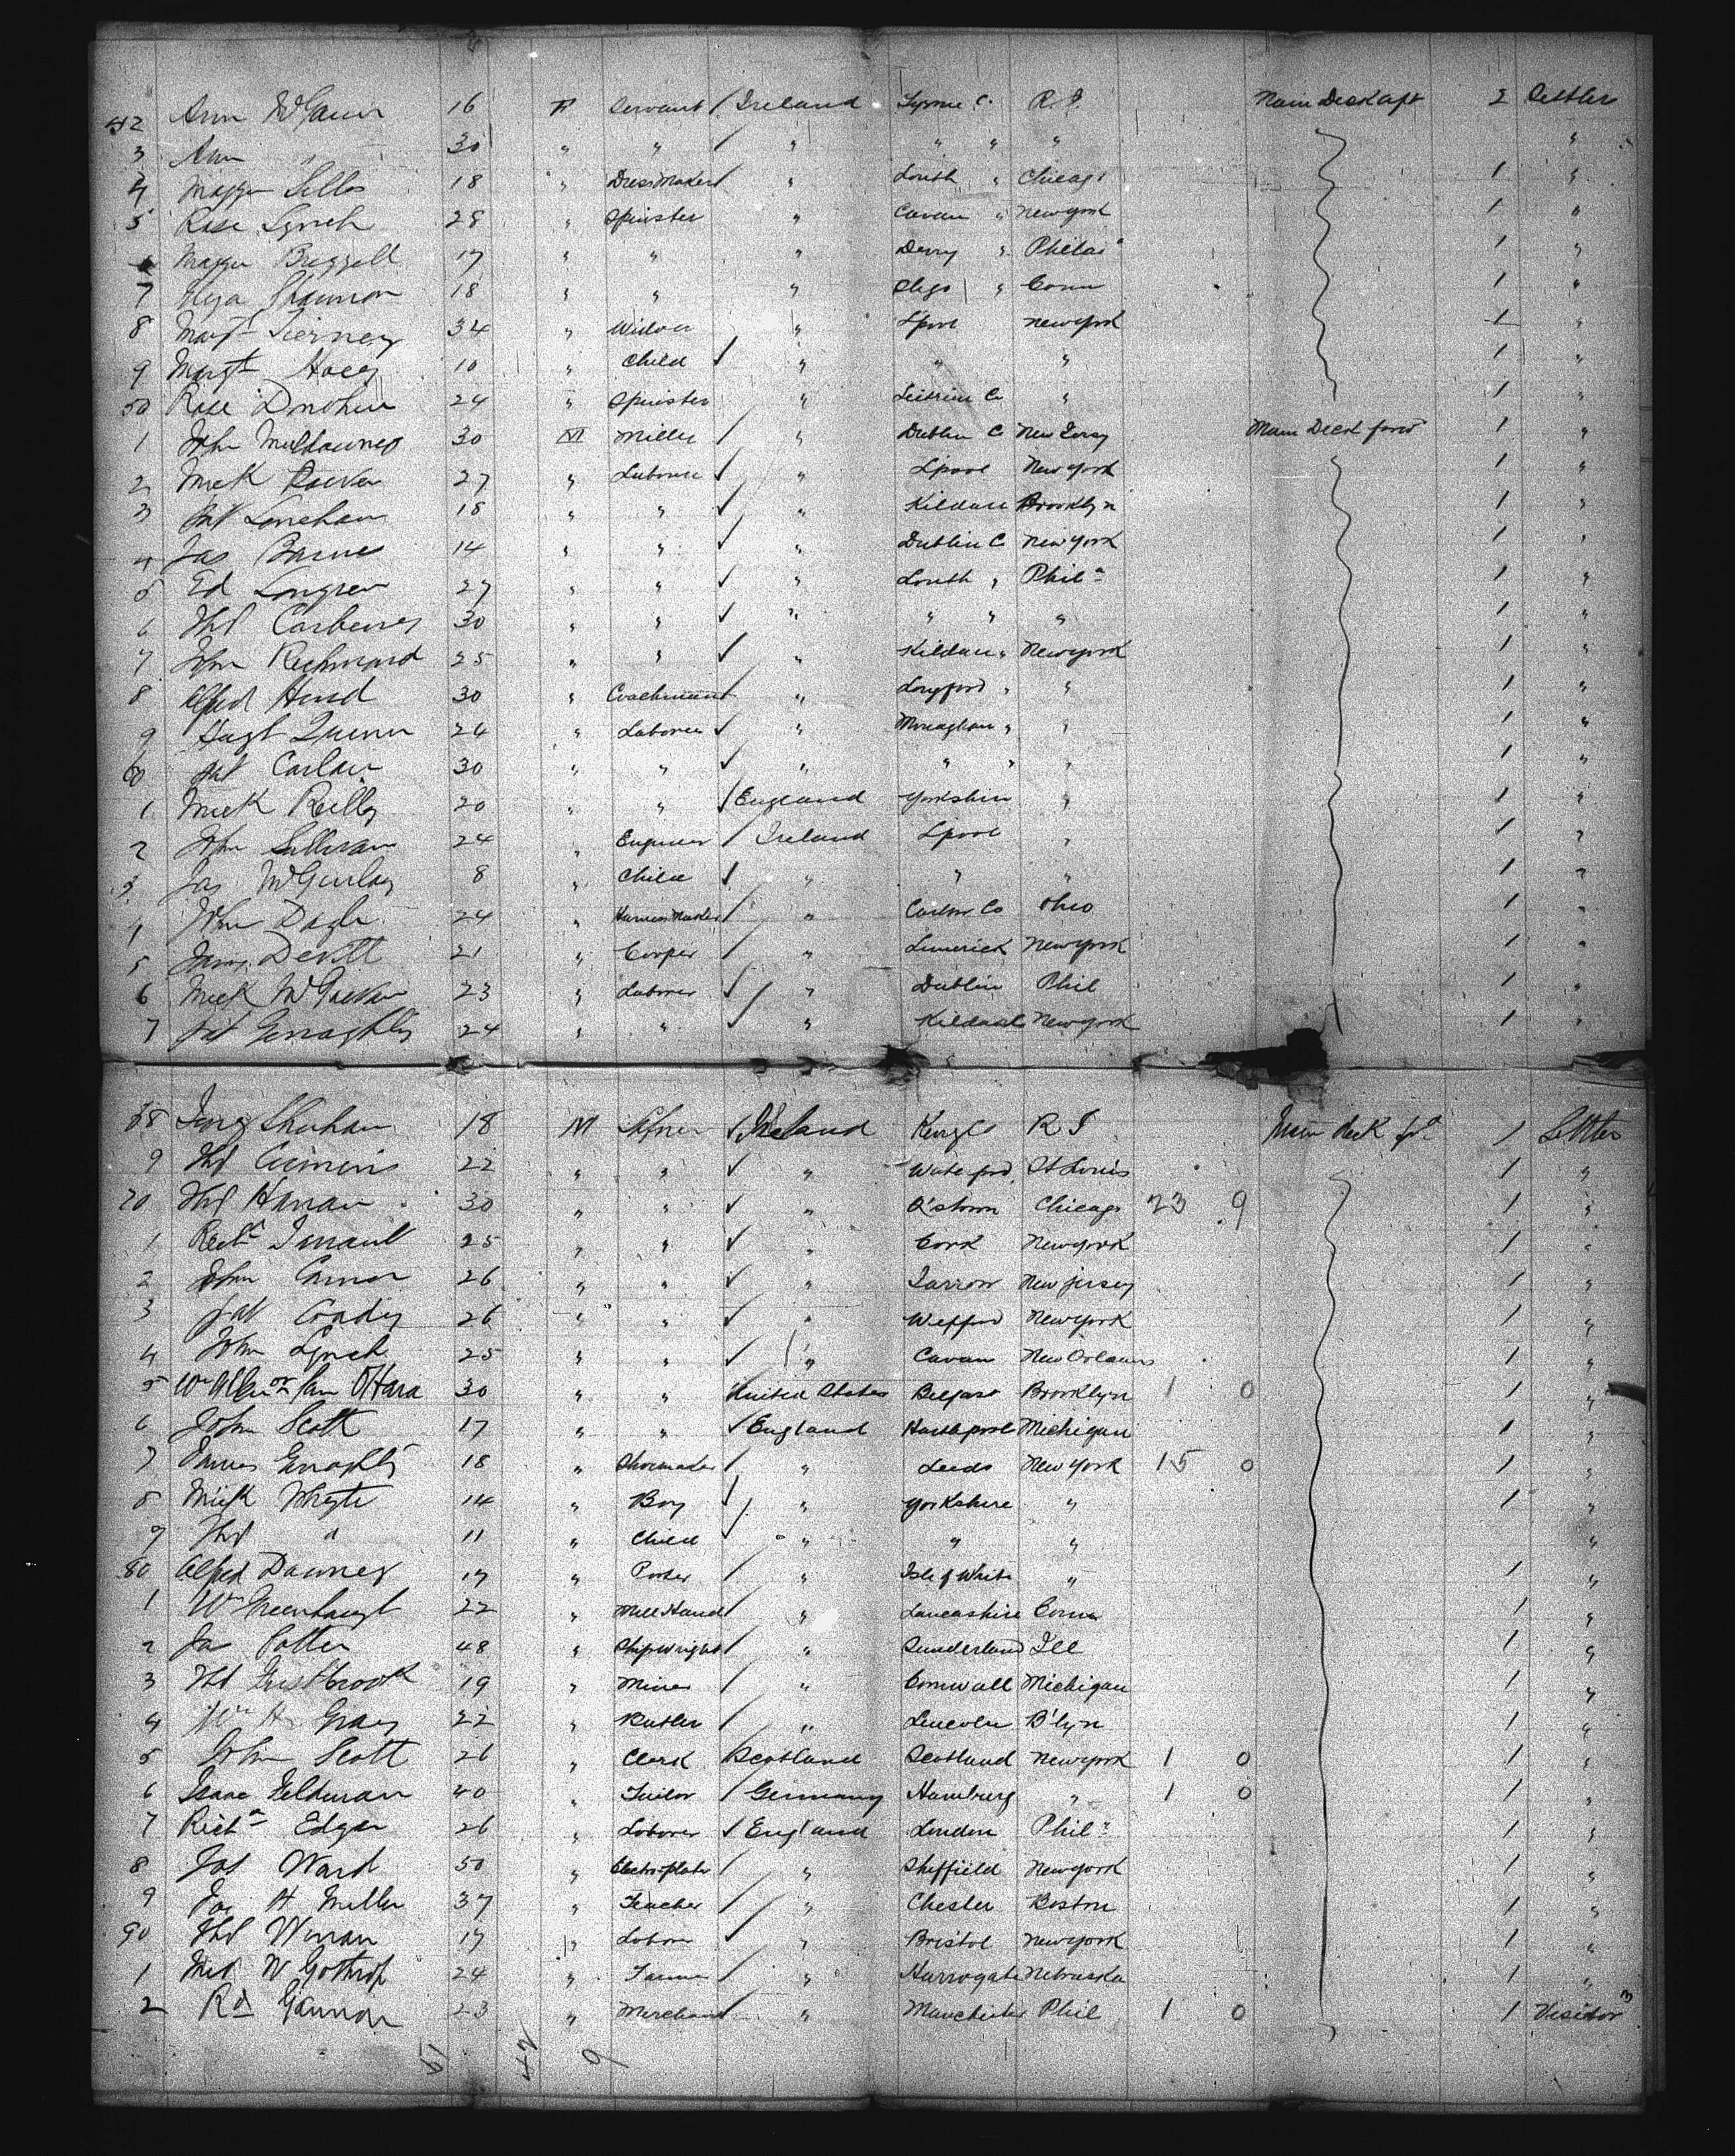 42 Ann McGann 16 F Servant / Ireland Tyrone C. R. I. Main Deck aft 2 Settler
3 Ann " 30 " " / " " " " "
4 Maggie 18 " DressMaker / " Louth " Chicago 1 "
5 Rose Lynch 28 " Spinster " Cavan " Newyork 1 "
Maggie 17 " " " Derry " Philaa 1 "
7 Eliza Shannon 18 " " " Sligo " Conn 1 "
8 Margt Tierney 34 " Widow " Lpool newyork 1 "
9 Margt Hoey 10 " Child ✓ " " " 1 "
50 Rose Donohue 24 " Spinster " Leitrim Co " 1 "
1 John 30 M Miller / " Dublin C New Jersey Main Deck forwd 1 "
2 Mick 27 " Laborer ✓ " Lpool New York 1 "
3 Pat Lenehan 18 " " ✓ " Kildare Brooklyn 1 "
4 Jas 14 " " ✓ " Dublin C New York 1 "
5 Ed 27 " " ✓ " Louth " Phila 1 "
6 Ths Carberry 30 " " ✓ " " " " 1 "
7 John Richmond 25 " " ✓ " Kildare " Newyork 1 "
8 Alfred Hind 30 " Coachman / " Longford " " 1 "
9 Hugh Quinn 24 " Laborer ✓ " Monaghan " " 1 "
60 Pat 30 " " ✓ " " " " 1 "
1 Mick Reilly 20 " " / England Yorkshire " 1 "
2 John Sullivan 24 " Engineer / Ireland Lpool " 1 "
3 Jas McGinlay 8 " Child ✓ " " " 1 "
4 John 24 " Harness Maker / " Carlow Co Ohio 1 "
5 James Devitt 21 " Cooper / " Limerick Newyork 1 "
6 Mick 23 " Laborer ✓ " Dublin Phil 1 "
7 Pat Geraghty 24 " " ✓ " Newyork 1 "
68 18 M ✓ Ireland Kings R I Main deck fd 1 Settler
9 Ths 22 " " ✓ " Waterford St Louis 1 "
70 Ths Hanan 30 " " ✓ " Q'stown Chicago 23 9 1 "
1 Richd 25 " " ✓ " Cork Newyork 1 "
2 John 26 " " ✓ " Jarrow New jersey 1 "
3 Pat Coady 26 " " ✓ " Wexford Newyork 1 "
4 John Lynch 25 " " ✓ " Cavan New Orleans 1 "
5 O'Hara 30 " " United States Belfast Brooklyn 1 0 1 "
6 John Scott 17 " " ✓ England Hartlepool Michigan 1 "
7 James Geraghty 18 " Shoemaker / " Leeds New York 15 0 1 "
8 Mick Whyte 14 " Boy ✓ " Yorkshire " 1 "
9 Ths " 11 " Child ✓ " " " "
80 Alfred Downey 17 " Porter / " Isle of White " 1 "
1 Wm Greenhaugh 22 " Mill Hand / " Lancashire Conn 1 "
2 Ja Potter 48 " Shipwright / " Sunderland Ill 1 "
3 Ths 19 " Miner / " Cornwall Michigan 1 "
4 Wm H. Gray 22 " Butler / " Lincoln B'lyn 1 "
5 John Scott 26 " Clerk Scotland Scotland Newyork 1 0 1 "
6 Isaac Feldman 40 " Tailor / Germany Hamburg " 1 0 1 "
7 Richd Edgar 26 " Laborer ✓ England London Phila 1 "
8 Jos Ward 50 " Electro-plater / " Sheffield Newyork 1 "
9 H Miller 37 " Teacher / " Chester Boston 1 "
90 Ths 17 " Labor ✓ " Bristol Newyork 1 "
1 W Gothrop 24 " Farmer / " Harrogate Nebraska 1 "
2 Rd Gannon 23 " Merchant / " Manchester Phil 1 0 1 Visidor
42 9